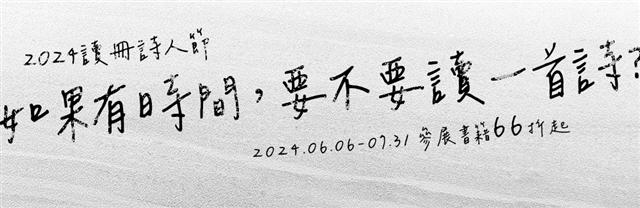 2024讀冊詩人節
如果有時間，要不要讀一首詩？
2024.06.06-07.31 參展書籍66折起